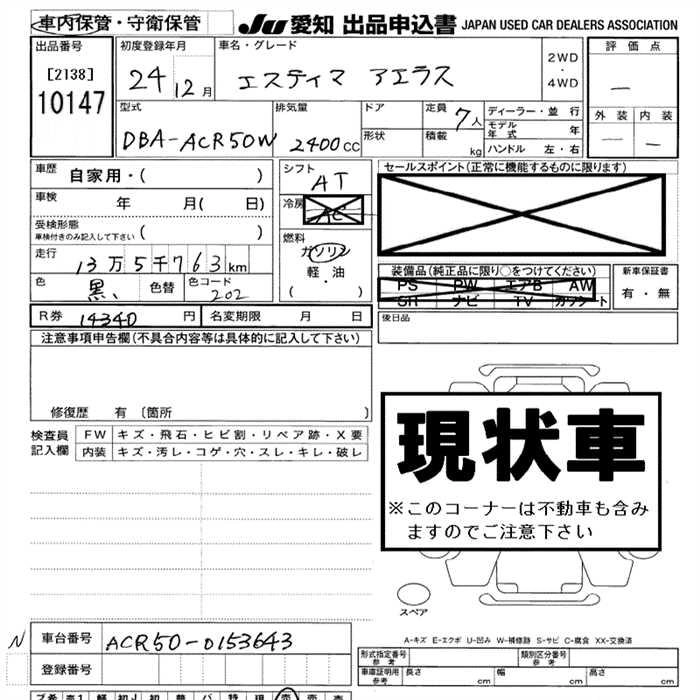 車内保管・守衛保管
JU 愛知 出品申込書 JAPAN USED CAR DEALERS ASSOCIATION
出品番号
[2138]
10147
初度登録年月
24 12 月
車名・グレード
エスティマ アエラス
2WD
・
4WD
評価点
—
外装 内装
— —
型式
DBA-ACR50W
排気量
2400 cc
ドア
形状
定員 7人
積載 kg
ディーラー・並行
モデル年式 年
ハンドル 左・右
車歴 自家用・( )
車検 年 月( 日)
受検形態
車検付きのみ記入して下さい ( )
走行 13万5千763km
色 黒、 色替 色コード 202
シフト AT
冷房 AC
燃料
ガソリン
軽・油
・( )
セールスポイント(正常に機能するものに限ります)
装備品(純正品に限り○をつけてください)
PS PW エアB AW
SH ナビ TV ガソシート
新車保証書
有・無
R券 14340 円 名変期限 月 日
後日品
注意事項申告欄(不具合内容等は具体的に記入して下さい)
修復歴 有〔箇所 〕
検査員記入欄
FW キズ・飛石・ヒビ割・リペア跡・X要
内装 キズ・汚レ・コゲ・穴・スレ・キレ・破レ
現状車
※このコーナーは不動車も含み
ますのでご注意下さい
スペア
A-キズ E-エクボ U-凹み W-補修跡 S-サビ C-腐食 XX-交換済
N 車台番号 ACR50-0153643
登録番号
形式指定番号 参考
類別区分番号 参考
車庫証明用 参考 長さ cm 幅 cm 高さ cm